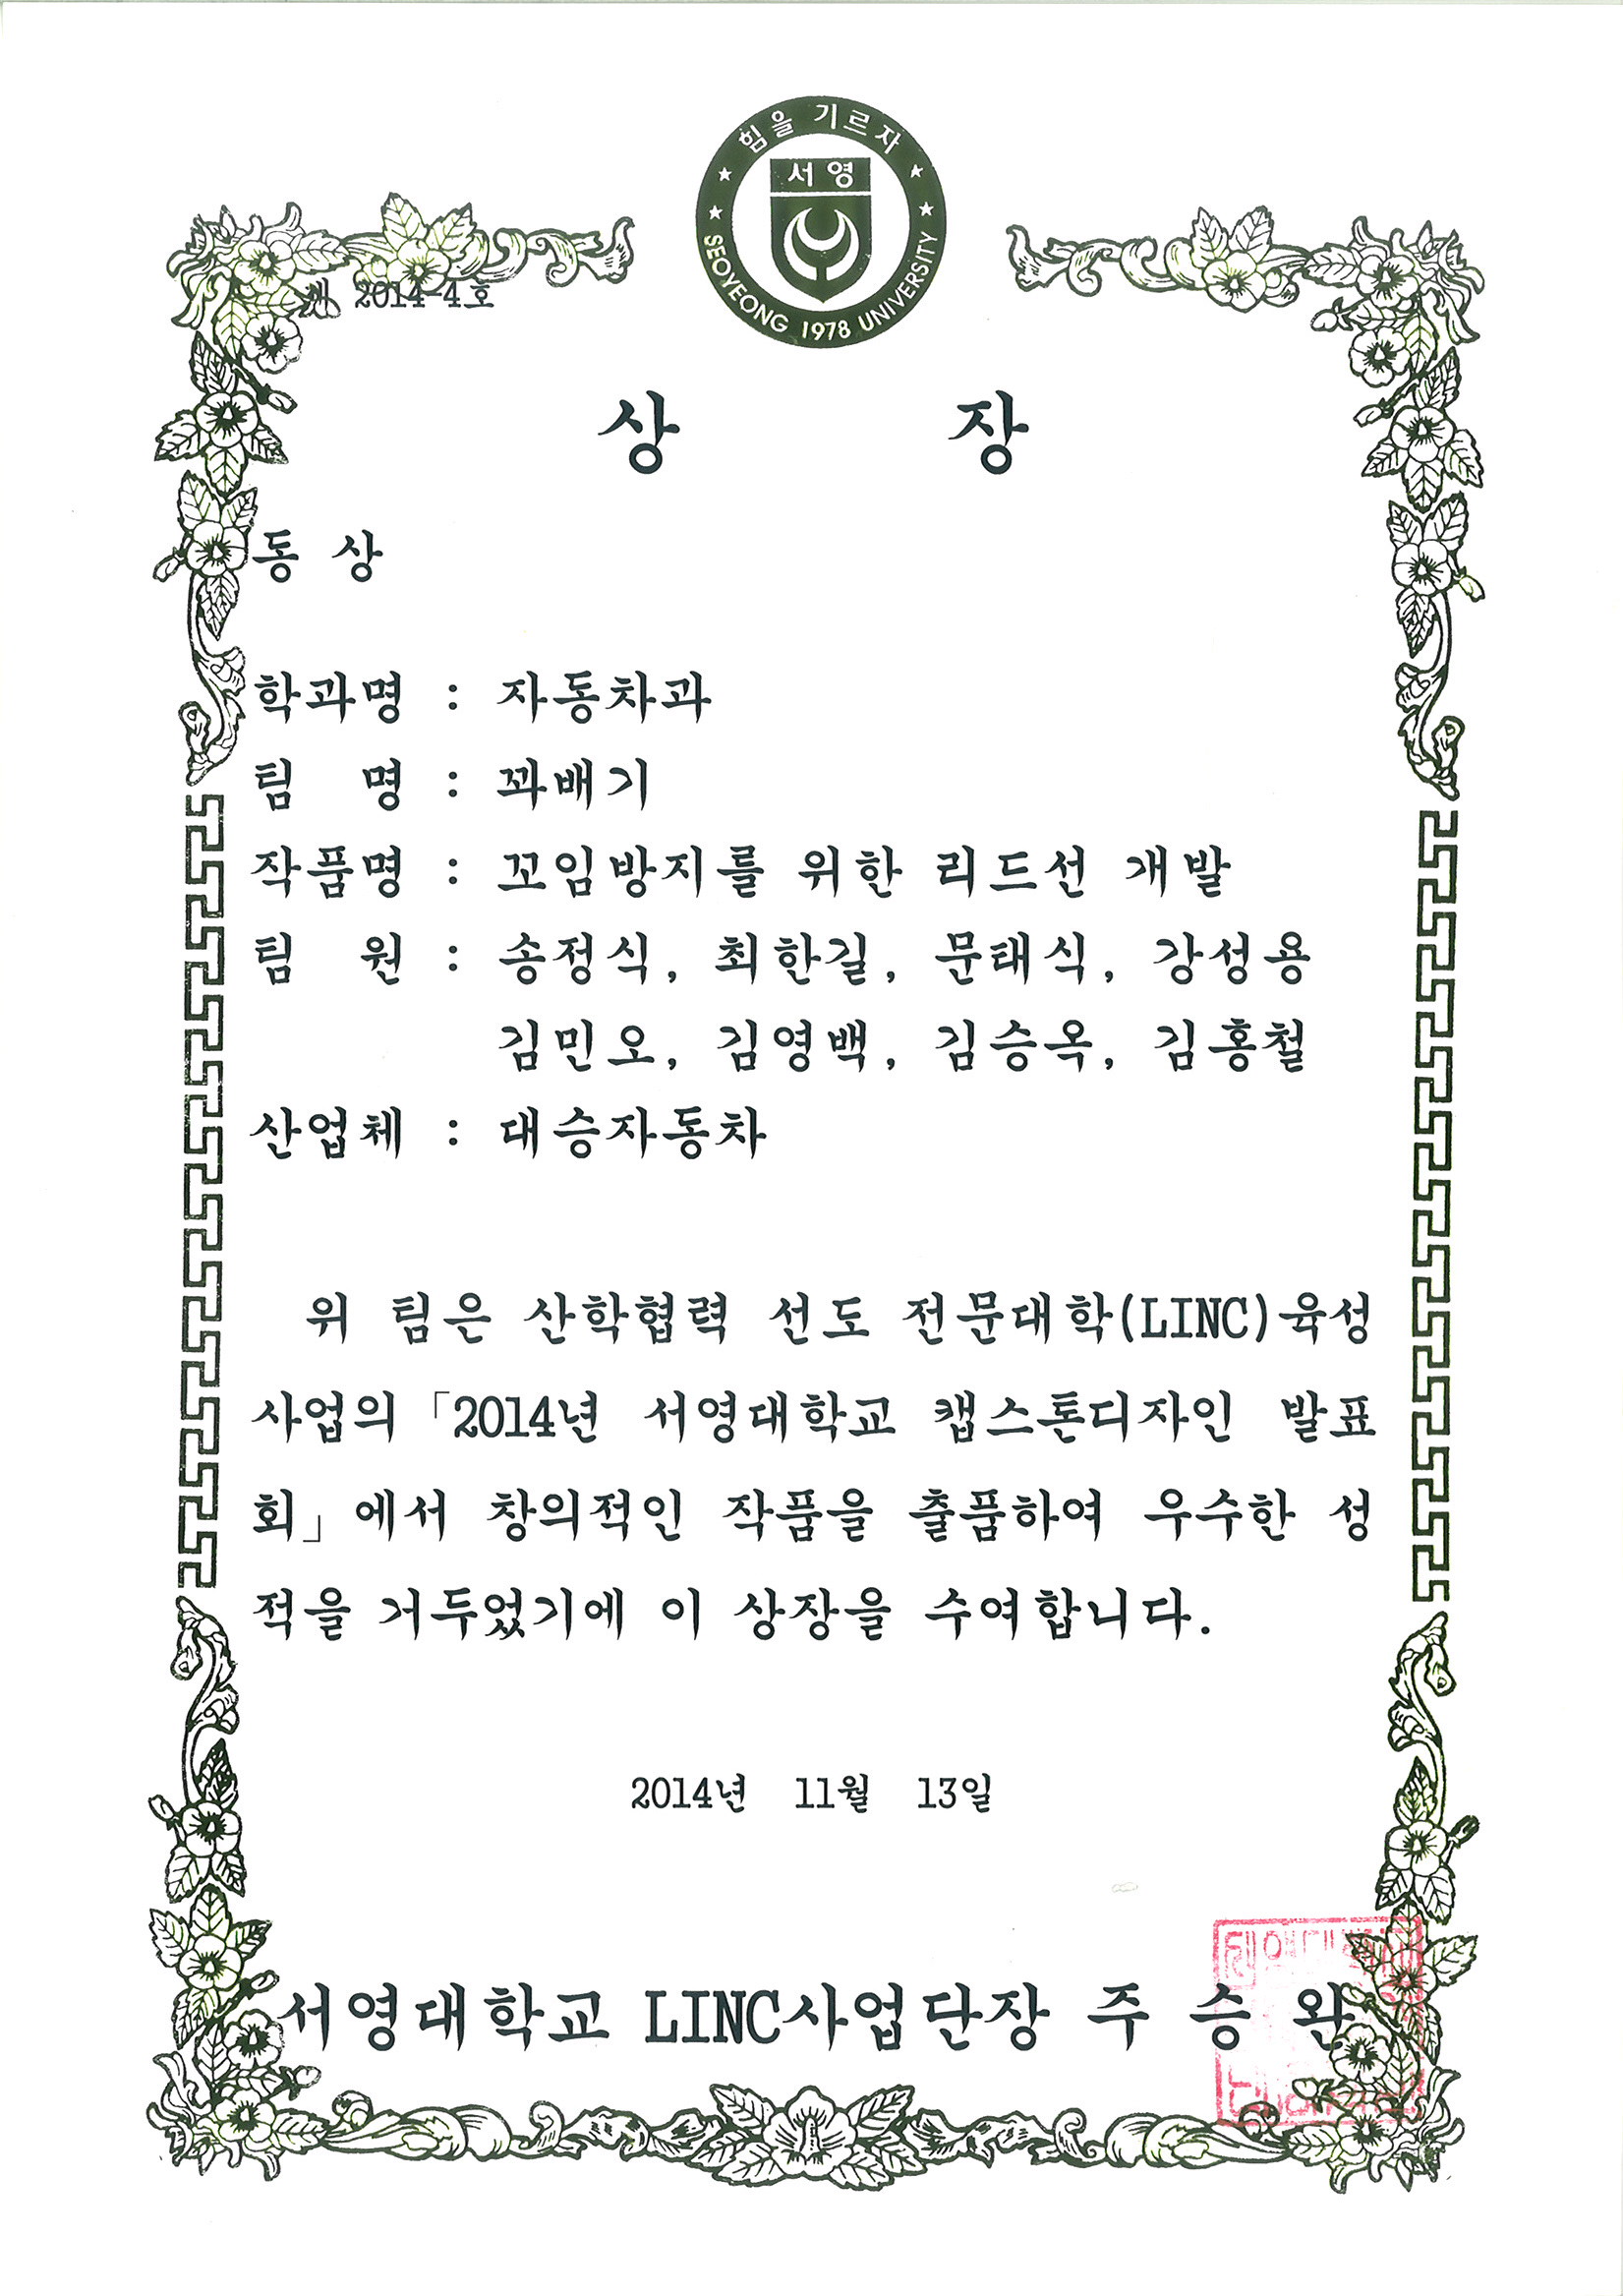 힘을 기르자
서영
SEOYEONG 1978 UNIVERSITY
제 2014-4호
상 장
동 상
학과명 : 자동차과
팀 명 : 꽈배기
작품명 : 꼬임방지를 위한 리드선 개발
팀 원 : 송정식, 최한길, 문태식, 강성용
김민오, 김영백, 김승옥, 김홍철
산업체 : 대승자동차
위 팀은 산학협력 선도 전문대학(LINC)육성
사업의「2014년 서영대학교 캡스톤디자인 발표
회」에서 창의적인 작품을 출품하여 우수한 성
적을 거두었기에 이 상장을 수여합니다.
2014년 11월 13일
서영대학교 LINC사업단장 주 승 완